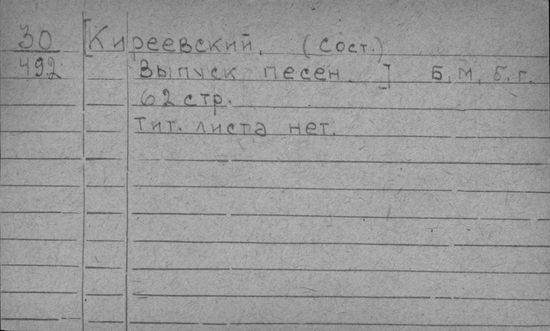 30 [Киреевский, (сост.)
492 Выпуск песен. ] Б, м, б. г.
62 стр.
Тит. листа нет.